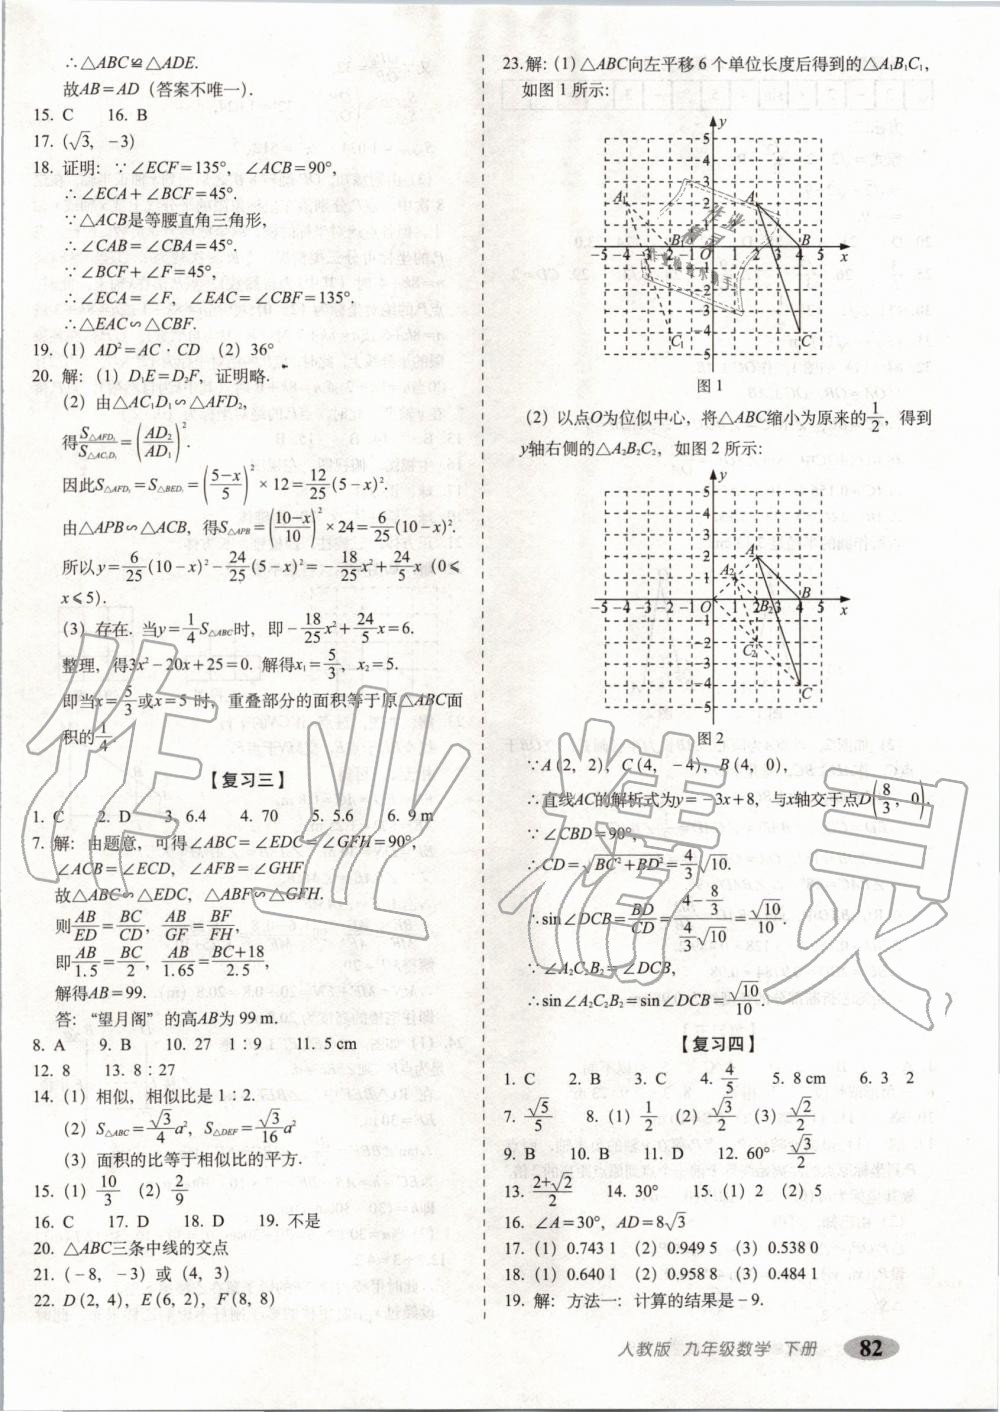 ∴△ABC≌△ADE.
故AB=AD（答案不唯一）.
15. C　16. B
17. (√3, -3)
18. 证明：∵∠ECF=135°，∠ACB=90°，
∴∠ECA+∠BCF=45°.
∵△ACB是等腰直角三角形，
∴∠CAB=∠CBA=45°.
∵∠BCF+∠F=45°，
∴∠ECA=∠F，∠EAC=∠CBF=135°，
∴△EAC∽△CBF.
19.（1）AD²=AC·CD （2）36°
20. 解：（1）D₁E=D₂F，证明略.
（2）由△AC₁D₁∽△AFD₂，
得S△AFD₂/S△AC₁D₁=(AD₂/AD₁)².
因此S△AFD₂=S△BED₁=((5-x)/5)²×12=12/25(5-x)².
由△APB∽△ACB，得S△APB=((10-x)/10)²×24=6/25(10-x)².
所以y=6/25(10-x)²-24/25(5-x)²=-18/25x²+24/5x（0⩽
x⩽5）.
（3）存在. 当y=1/4S△ABC时，即-18/25x²+24/5x=6.
整理，得3x²-20x+25=0. 解得x₁=5/3，x₂=5.
即当x=5/3或x=5时，重叠部分的面积等于原△ABC面
积的1/4.
【复习三】
1. C　2. D　3. 6.4　4. 70　5. 5.6　6. 9 m
7. 解：由题意，可得∠ABC=∠EDC=∠GFH=90°，
∠ACB=∠ECD，∠AFB=∠GHF，
故△ABC∽△EDC，△ABF∽△GFH.
则AB/ED=BC/CD，AB/GF=BF/FH，
即AB/1.5=BC/2，AB/1.65=(BC+18)/2.5，
解得AB=99.
答：“望月阁”的高AB为99 m.
8. A　9. B　10. 27　1∶9　11. 5 cm
12. 8　13. 8∶27
14.（1）相似，相似比是1∶2.
（2）S△ABC=√3/4a²，S△DEF=√3/16a²
（3）面积的比等于相似比的平方.
15.（1）10/3 （2）2/9
16. C　17. D　18. D　19. 不是
20. △ABC三条中线的交点
21. (-8, -3) 或 (4, 3)
22. D(2, 4)，E(6, 2)，F(8, 8)
23.解：（1）△ABC向左平移6个单位长度后得到的△A₁B₁C₁，
如图1所示：
图1
（2）以点O为位似中心，将△ABC缩小为原来的1/2，得到
y轴右侧的△A₂B₂C₂，如图2所示：
图2
∵A(2, 2)，C(4, -4)，B(4, 0)，
∴直线AC的解析式为y=-3x+8，与x轴交于点D(8/3, 0).
∵∠CBD=90°，
∴CD=√(BC²+BD²)=4/3√10.
∴sin∠DCB=BD/CD=(4-8/3)/(4/3√10)=√10/10.
∵∠A₂C₂B₂=∠DCB，
∴sin∠A₂C₂B₂=sin∠DCB=√10/10.
【复习四】
1. C　2. B　3. C　4. 4/5　5. 8 cm　6. 3　2
7. √5/5　8.（1）1/2 （2）√3/2 （3）√2/2
9. B　10. B　11. D　12. 60°　√3/2
13. (2+√2)/2　14. 30°　15.（1）2 （2）5
16. ∠A=30°，AD=8√3
17.（1）0.743 1 （2）0.949 5 （3）0.538 0
18.（1）0.640 1 （2）0.958 8 （3）0.484 1
19. 解：方法一：计算的结果是-9.
人教版 九年级数学 下册 82
作业精灵